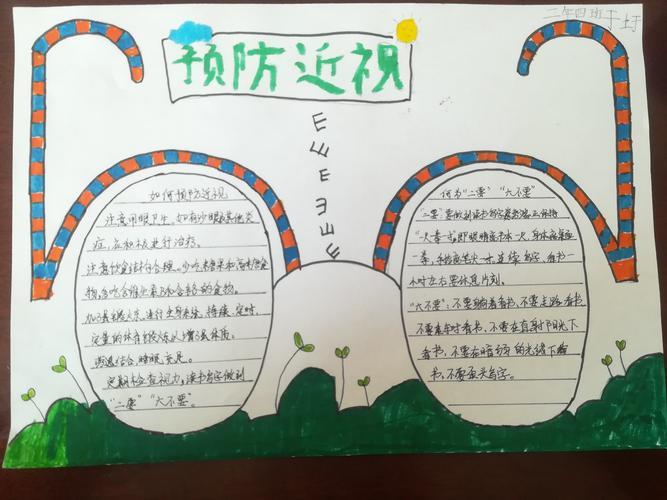 二年四班于
预防近视
E E E E E E E
如何预防近视
注意用眼卫生。如有沙眼或其他炎
症，应积极进行治疗。
注意饮食结构合理。少吃糖果和高糖食
物，多吃含维生素及和含锌的食物。
加强户外，进行体系统，持续，定时，
定量的体育锻炼以增强体质。
劳逸结合，睡眠充足。
定期检查视力，读书写字做到
“二要”“六不要”。
何为“二要”“六不要”
“二要”要做到读书写字姿势端正保持
“一尺一拳一寸”即眼睛离书本一尺，身体离桌一
拳，手指离笔尖一寸。连续写字，看书一
小时左右要休息片刻。
“六不要”：不要躺着看书、不要走路看书、
不要乘车时看书、不要在直射阳光下
看书，不要在暗弱的光线下看
书，不要歪头写字。